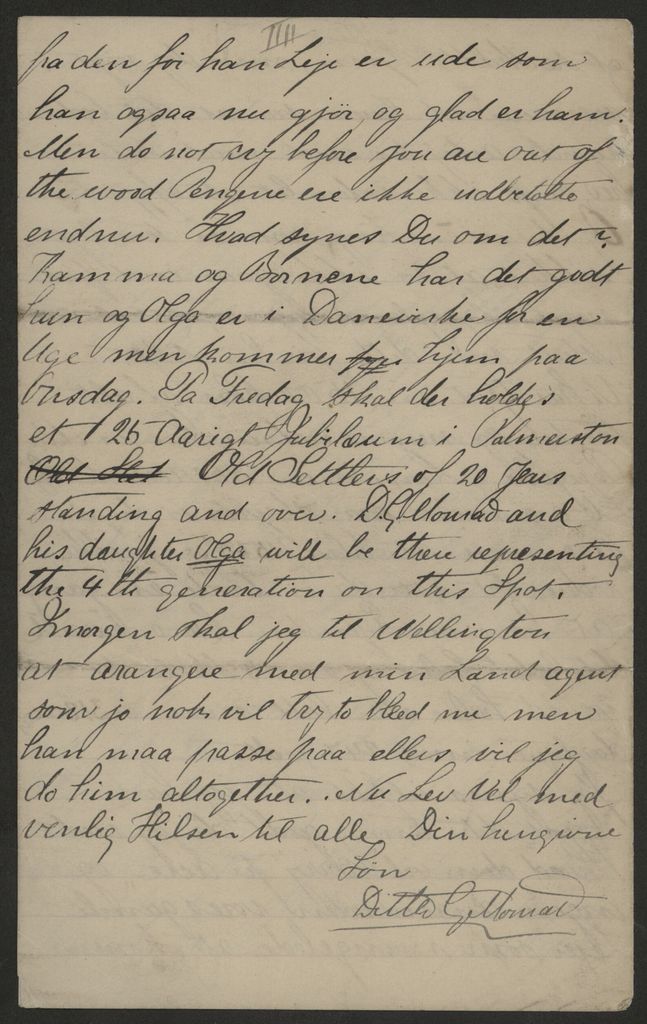 IIII
fra den før han Leje er ude som
han ogsaa nu gjör, og glad er ham.
Men do not cry before you are out of
the wood Pengene ere ikke udbetalte
endnu. Hvad synes Du om det?
Kamma og Børnene har det godt
hun og Olga er i Danevirke for en
Uge men kommer hjem paa
Onsdag. Pa Fredag skal der holdes
et 25 Aarigt Jubilæum i Palmerston
Old Settlers of 20 Years
standing and over. D.G. Monrad and
his daughter Olga will be there representing
the 4th generation on this Spot.
Imorgen skal jeg til Wellington
at arangere med min Land agent
som jo nok vil try to bleed me men
han maa passe paa ellers vil jeg
do him altogether. Nu Lev Vel med
venlig Hilsen til alle Din hengivne
Søn
Ditlev G Monrad